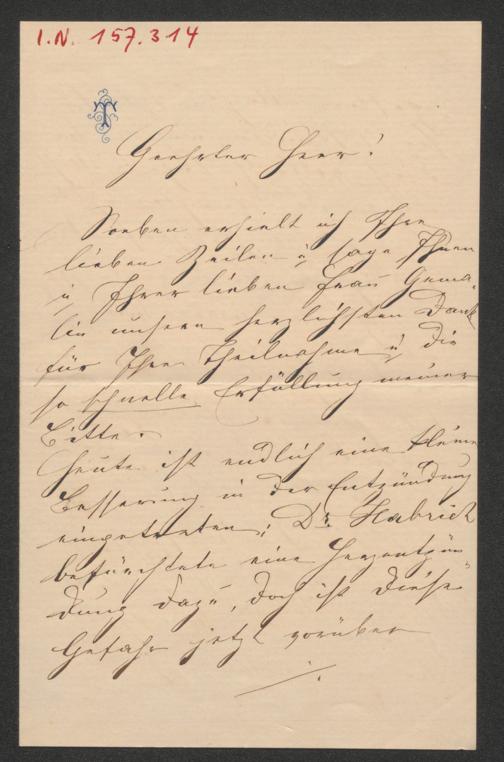 I.N. 157.314
T
Geehrter Herr!
Soeben erhielt ich Ihre
lieben Zeilen u sage Ihnen
u Ihrer lieben Frau Gema-
lin unsern herzlichsten Dank
für Ihre Theilnahme u die
so schnelle Erfüllung meiner
Bitte.
Heute ist endlich eine kleine
Besserung in der Entzündung
eingetreten; Dr. Habrich
befürchtete eine Herzentzün-
dung dazu, doch ist diese
Gefahr jetzt vorüber
./.